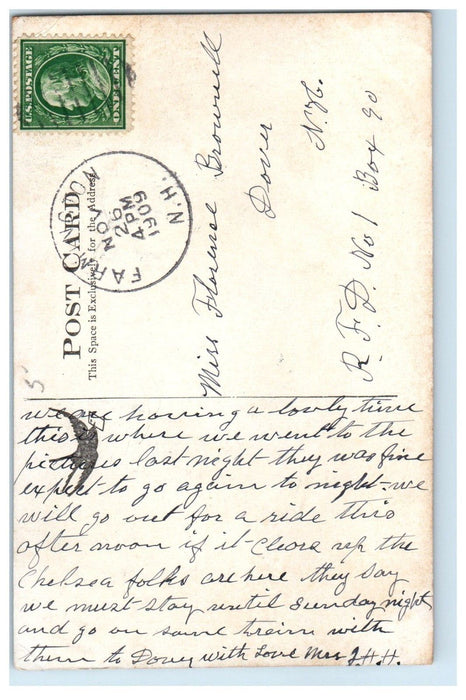 U.S. POSTAGE
ONE CENT
FARM
NOV
26
4 PM
1909
N.H.
POST CARD
This Space is Exclusively for the Address
Miss Florence Brownell
Dover
N.H.
R.F.D. No 1 Box 90
5
we are having a lovly time
this is where we went to the
pictures last night they was fine
expert to go again to night - we
will go out for a ride this
after noon if it Clears up the
Chelsea folks are here they Say
we must stay until Sunday night
and go on same train with
them to Dover with Love Mrs J.H.H.